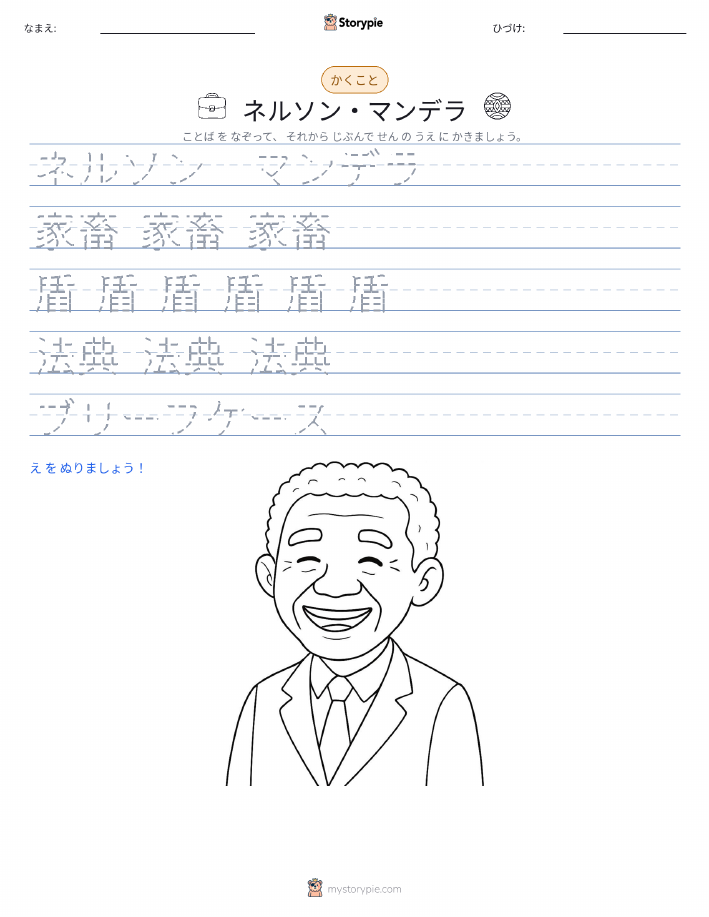 なまえ:
Storypie
ひづけ:
かくこと
ネルソン・マンデラ
ことば を なぞって、 それから じぶんで せん の うえ に かきましょう。
ネルソン マンデラ
家畜 家畜 家畜
盾 盾 盾 盾 盾 盾
法典 法典 法典
ブリーフケース
え を ぬりましょう！
mystorypie.com